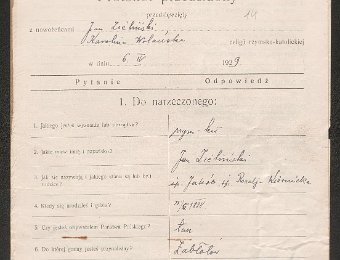 przedślubnej
z nowożeńcami Jan Zieliński,
Karolina
religii rzymsko-katolickiej
w dniu 6 IV 1929
Pytanie Odpowiedź
I. Do narzeczonego:
1. Jakiego jesteś wyznania lub obrządku? rzym. kat
2. Jakie masz imię i nazwisko? Jan Zieliński
3. Jak się nazywają i jakiego stanu są lub byli
rodzice? śp. Jakób śp.
4. Kiedy się urodziłeś i gdzie?
5. Czy jesteś obywatelem Państwa Polskiego? tak
6. Do której gminy jesteś przynależny? Zabłotów